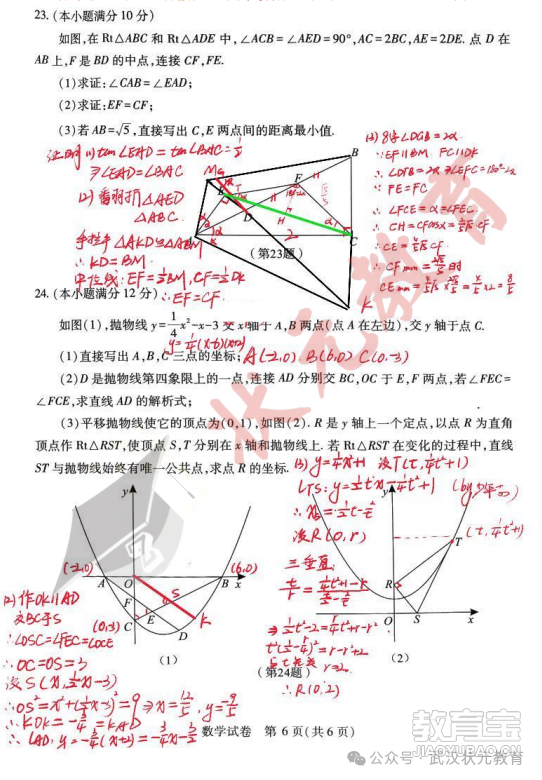 23.(本小题满分 10 分)
如图,在 Rt△ABC 和 Rt△ADE 中,∠ACB=∠AED=90°,AC=2BC,AE=2DE. 点 D 在
AB 上,F 是 BD 的中点,连接 CF,FE.
(1)求证:∠CAB=∠EAD;
(2)求证:EF=CF;
(3)若 AB=√5,直接写出 C,E 两点间的距离最小值.
证明 (1) tan∠EAD = tan∠BAC = 1/2
∴∠EAD=∠BAC
(2) 翻折△AED
△ABC
手拉手 △AKD≌△ABM
∴KD=BM
中位线: EF=1/2BM, CF=1/2DK
∴EF=CF
∵EF∥BM FC∥DK
∴FE=FC
∠FCE=α=∠FEC
B
F
E
D
C
K
(第23题)
24.(本小题满分 12 分)
如图(1),抛物线 y=1/4x²-x-3 交 x 轴于 A,B 两点(点 A 在左边),交 y 轴于点 C.
y=1/4(x-6)(x+2)
(1)直接写出 A,B,C 三点的坐标; A(-2,0) B(6,0) C(0,-3)
(2)D 是抛物线第四象限上的一点,连接 AD 分别交 BC,OC 于 E,F 两点,若∠FEC=
∠FCE,求直线 AD 的解析式;
(3)平移抛物线使它的顶点为(0,1),如图(2). R 是 y 轴上一个定点,以点 R 为直角
顶点作 Rt△RST,使顶点 S,T 分别在 x 轴和抛物线上. 若 Rt△RST 在变化的过程中,直线
ST 与抛物线始终有唯一公共点,求点 R 的坐标.
(3) y=1/4x²+1 设T(t,1/4t²+1)
LTS: y=1/2tx-1/4t²+1
设R(0,r)
三垂直
∴R(0,2)
y
(-2,0)
(6,0)
A
O
B
x
F
S
C
E
D
K
(1)
y
T
(t,1/4t²+1)
R
O
S
x
(2)
(第24题)
(2) 作OK∥AD
交BC于S
∴∠OSC=∠FEC=∠OCE
∴OC=OS=3
设S(x,1/2x-3)
∴OS²=x²+(1/2x-3)²=9 ⇒ x=12/5, y=-9/5
∴KOK=-3/4=KAD
∴LAD: y=-3/4(x+2)=-3/4x-3/2
数学试卷 第 6 页(共 6 页)
状元教育
教育宝
JIAOYUBAO.CN
公众号·武汉状元教育